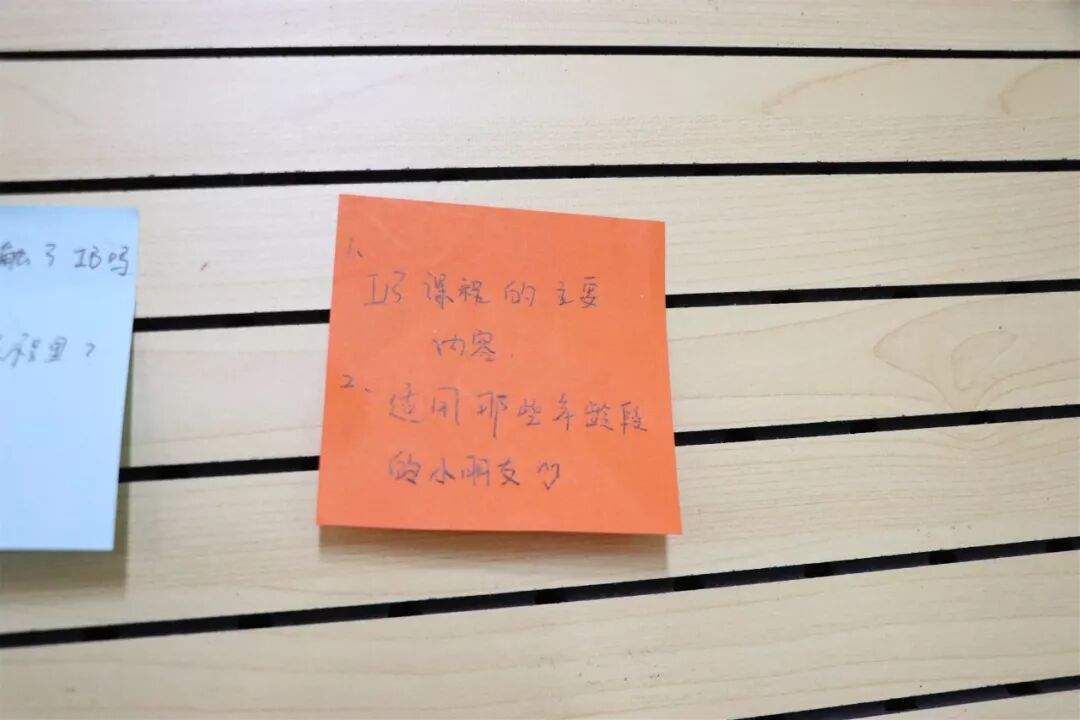 触了IB吗
程里?
1、
IB课程的主要
内容.
2、适用那些年龄段
的小朋友